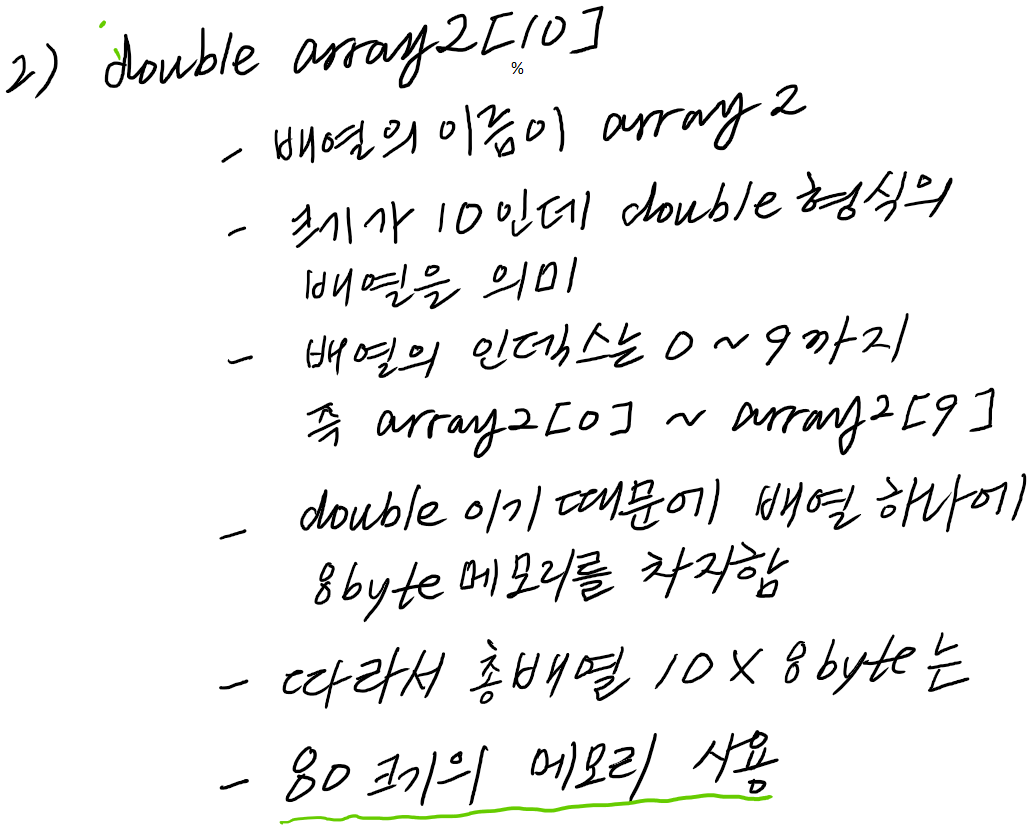 2) double array2[10]
%
- 배열의 이름이 array 2
- 크기가 10인데 double 형식의
배열을 의미
- 배열의 인덱스는 0 ~ 9까지
즉 array2[0] ~ array2[9]
- double 이기 때문에 배열 하나에
8byte 메모리를 차지함
- 따라서 총배열 10 X 8byte는
- 80 크기의 메모리 사용